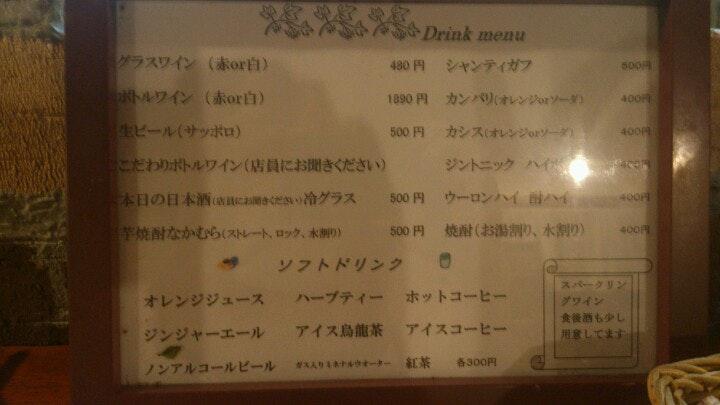 Drink menu
グラスワイン (赤or白) 480円 シャンティガフ 500円
ボトルワイン (赤or白) 1890円 カンパリ(オレンジorソーダ) 400円
生ビール(サッポロ) 500円 カシス(オレンジorソーダ) 400円
こだわりボトルワイン(店員にお聞きください) ジントニック 400円
本日の日本酒(店員にお聞きください)冷グラス 500円 ウーロンハイ 酎ハイ 400円
芋焼酎なかむら(ストレート、ロック、水割り) 500円 焼酎(お湯割り、水割り) 400円
ソフトドリンク
オレンジジュース ハーブティー ホットコーヒー
ジンジャーエール アイス烏龍茶 アイスコーヒー
ノンアルコールビール ガス入りミネナルウオーター 紅茶 各300円
スパークリン
グワイン
食後酒も少し
用意してます